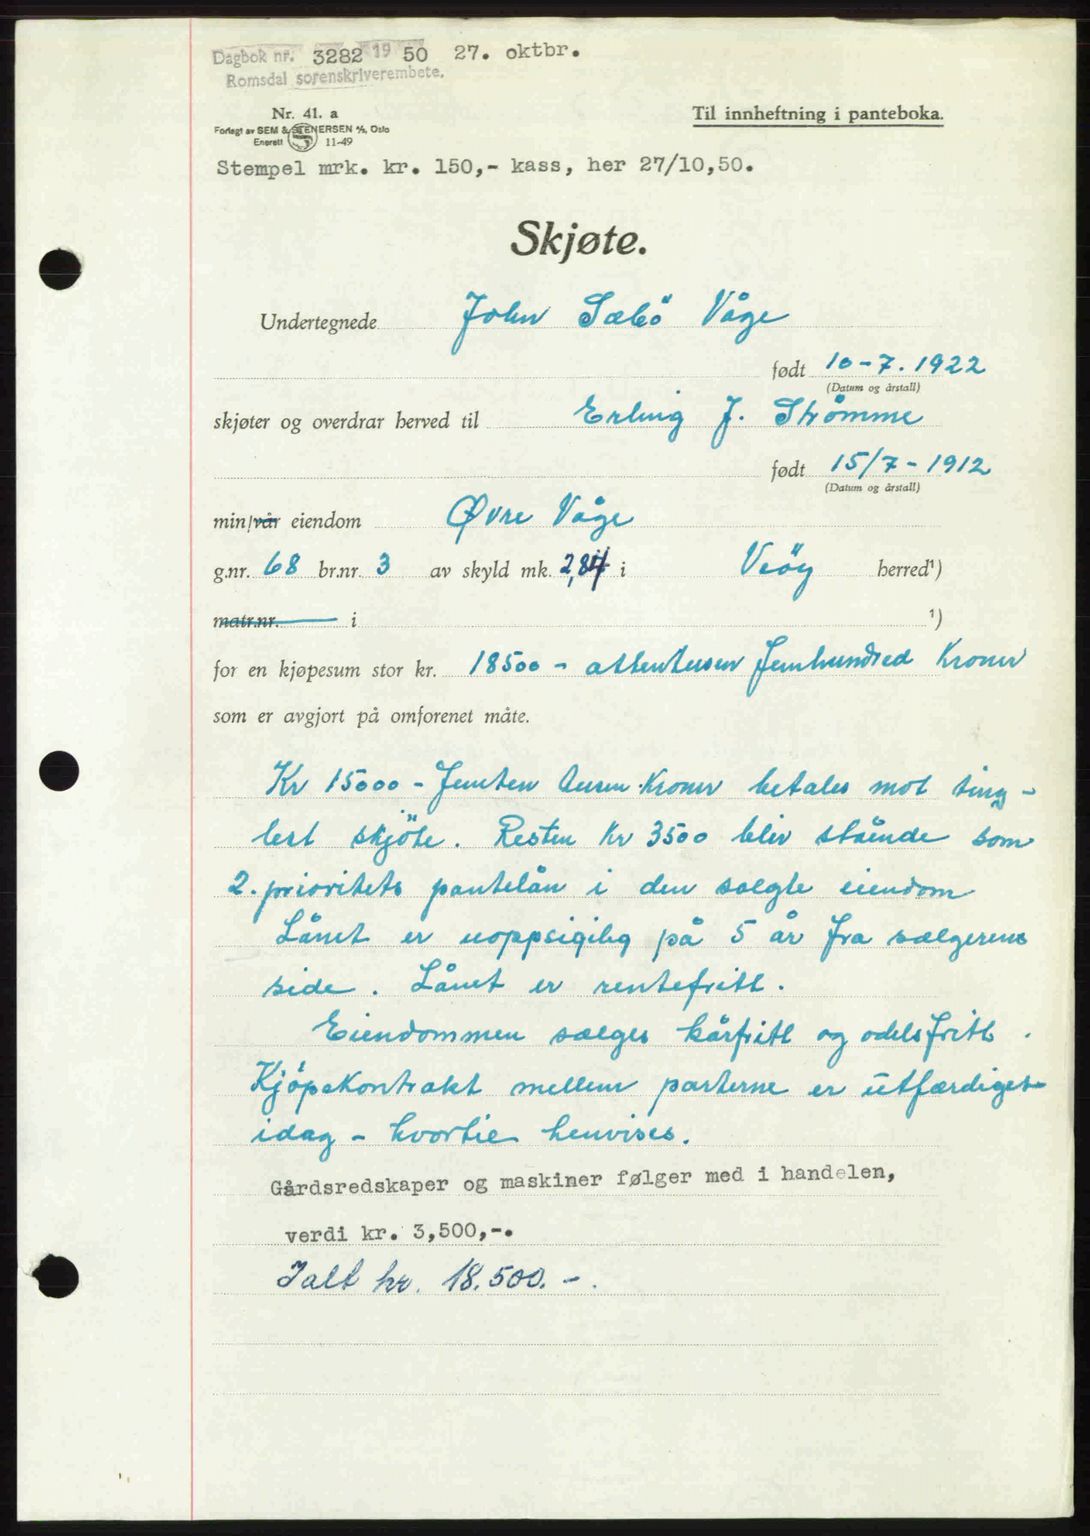 Dagbok nr. 3282 19 50 27. oktbr.
Romsdal sorenskriverembete.
Nr. 41. a
Til innheftning i panteboka.
Forlagt av SEM & STENERSEN A/S, Oslo
Enerett 11-49
Stempel mrk. kr. 150,- kass, her 27/10,50.
Skjøte.
Undertegnede John Sæbö Våge
født 10-7.1922
(Datum og årstall)
skjøter og overdrar herved til Erling J. Strømme
født 15/7-1912
(Datum og årstall)
min/vår eiendom Øvre Våge
g.nr. 68 br.nr. 3 av skyld mk. 2,84 i Veöy herred¹)
matr.nr. i ¹)
for en kjøpesum stor kr. 18500 - attentusen femhundred Kroner
som er avgjort på omforenet måte.
Kr 15000 - femten tusen Kroner betales mot ting-
lest skjöte. Resten Kr 3500 blir stående som
2. prioritets pantelån i den solgte eiendom
Lånet er uoppsigilig på 5 år fra sælgerens
side. Lånet er rentefritt.
Eiendommen sælges kårfritt og odelsfritt.
Kjöpekontrakt mellem parterne er utfærdiget
idag - hvortil henvises.
Gårdsredskaper og maskiner følger med i handelen,
verdi kr. 3,500,-.
Ialt kr. 18.500.-.